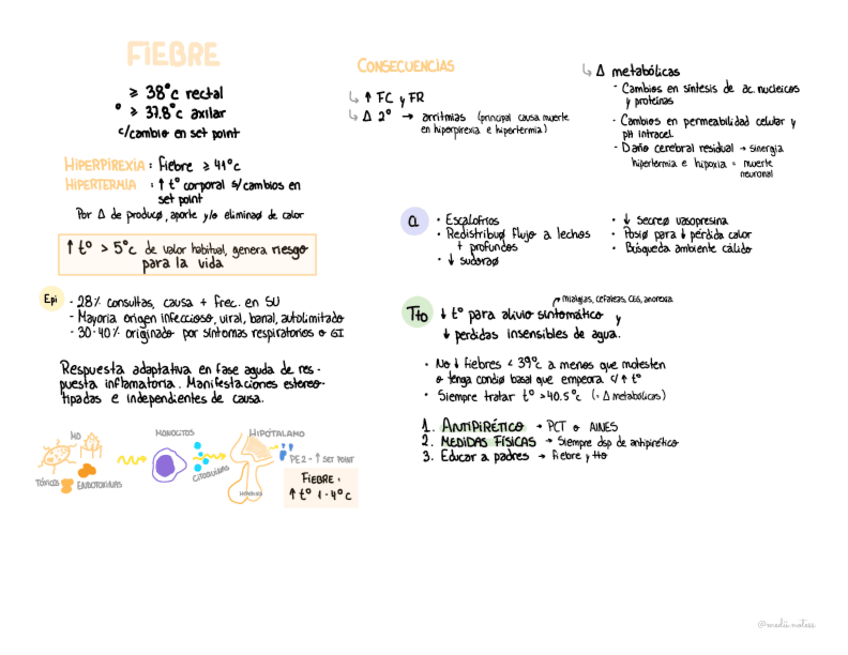 FIEBRE
≥ 38°c rectal
° ≥ 37.8°c axilar
c/cambio en set point
HIPERPIREXIA : fiebre ≥ 41°c
HIPERTERMIA : ↑ t° corporal s/cambios en
set point
Por Δ de producø, aporte y/o eliminaø de calor
↑ t° > 5°c de valor habitual, genera riesgo
para la vida
Epi
- 28% consultas, causa + frec. en SU
- Mayoría origen infeccioso, viral, banal, autolimitado
- 30-40% originado por síntomas respiratorios o GI
Respuesta adaptativa en fase aguda de res-
puesta inflamatoria. Manifestaciones estereo-
tipadas e independientes de causa.
MO
TÓXICOS
ENDOTOXINAS
MONOCITOS
CITOQUINAS
HIPOTALAMO
HIPÓFISIS
PE2 - ↑ SET POINT
FIEBRE :
↑ t° 1-4°c
CONSECUENCIAS
↳ ↑ FC y FR
↳ Δ 2° → arritmias (principal causa muerte
en hiperpirexia e hipertermia)
↳ Δ metabólicas
- Cambios en síntesis de ac. nucleicos
y proteínas
- Cambios en permeabilidad celular y
pH intracel.
- Daño cerebral residual → sinergia
hipertermia e hipoxia = muerte
neuronal
Cl
• Escalofríos
• Redistribuø flujo a lechos
+ profundos
• ↓ sudoraø
• ↓ secreø vasopresina
• Posiø para ↓ pérdida calor
• Búsqueda ambiente cálido
mialgias, cefaleas, CEG, anorexia.
Tto ↓ t° para alivio sintomático y
↓ perdidas insensibles de agua.
• No ↓ fiebres < 39°c a menos que molesten
o tenga condiø basal que empeora c/ ↑ t°
• Siempre tratar t° >40.5°c (= Δ metabólicas)
1. ANTIPIRÉTICO → PCT o AINES
2. MEDIDAS FÍSICAS → Siempre dsp de antipirético
3. Educar a padres → fiebre y tto
@medii.notess